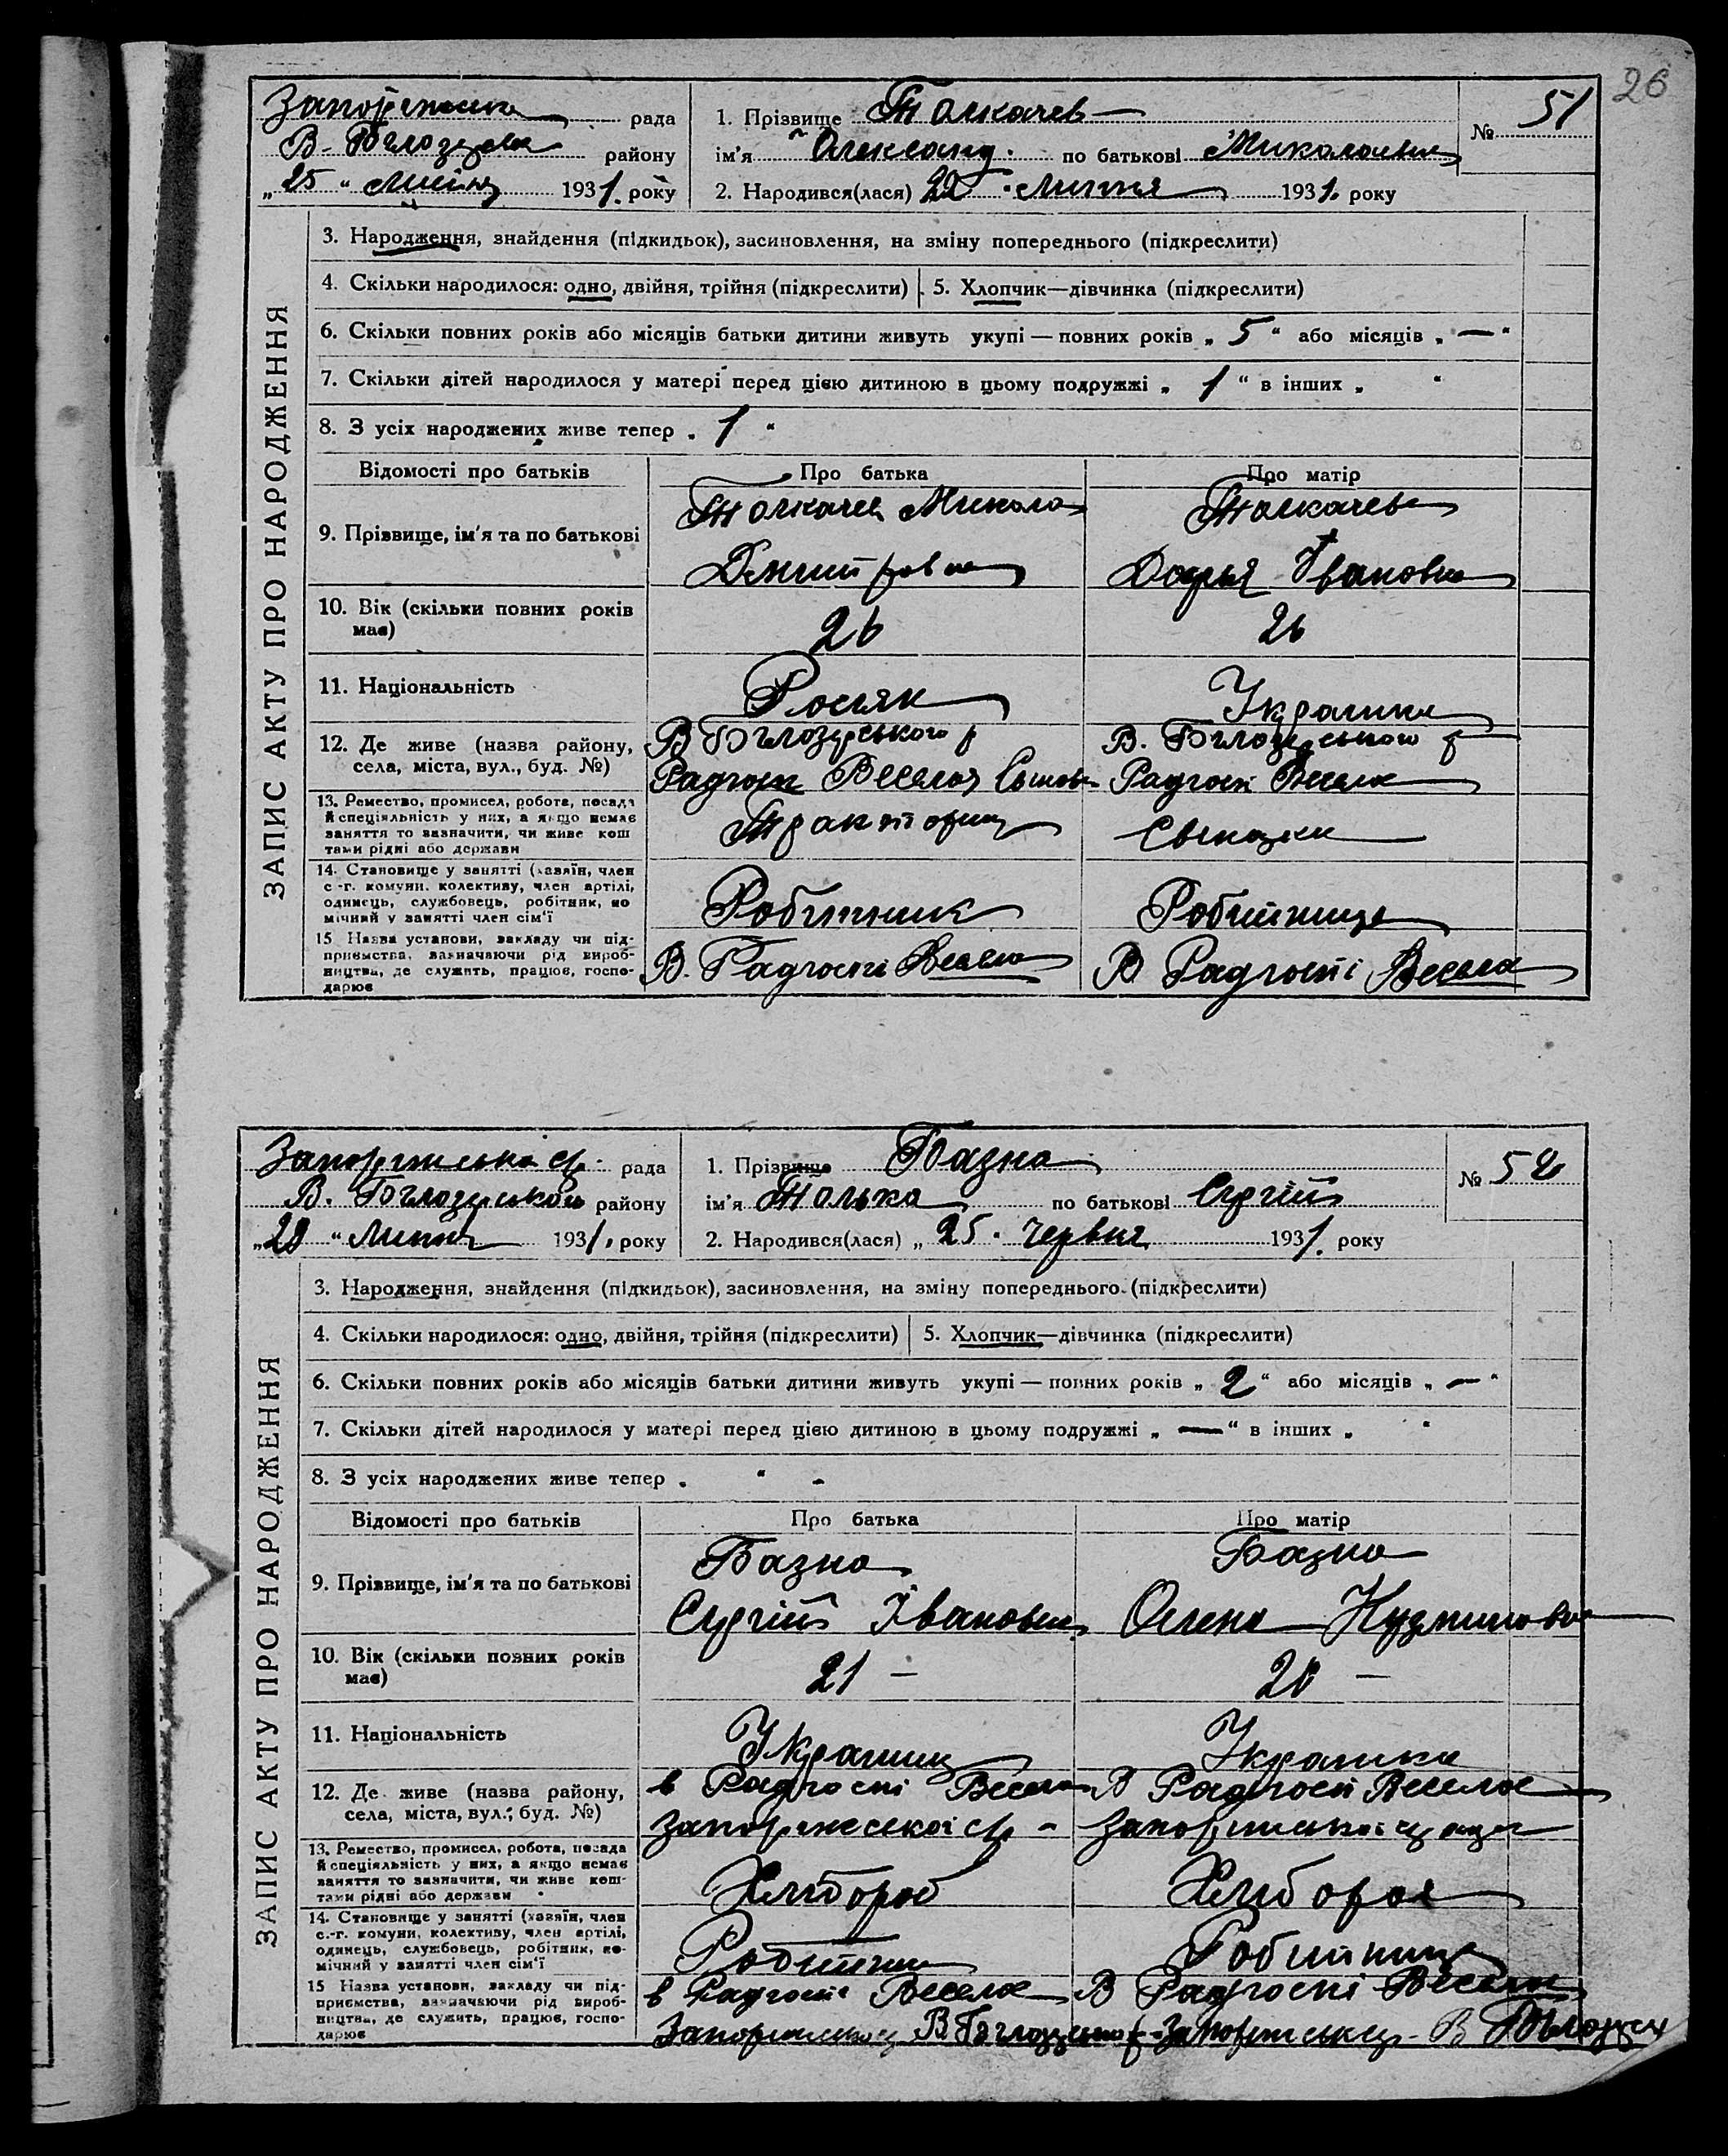 26
ЗАПИС АКТУ ПРО НАРОДЖЕННЯ
рада
В. Білозерськ району
„25“ Липня 1931. року
1. Прізвище Толкачев
№ 51
ім'я Олександ. по батькові Миколаевич
2. Народився(лася) 22 Липня 1931. року
3. Народження, знайдення (підкидьок), засиновлення, на зміну попереднього (підкреслити)
4. Скільки народилося: одно, двійня, трійня (підкреслити)
5. Хлопчик—дівчинка (підкреслити)
6. Скільки повних років або місяців батьки дитини живуть укупі — повних років „ 5 “ або місяців „ — “
7. Скільки дітей народилося у матері перед цією дитиною в цьому подружжі „ 1 “ в інших „ “
8. З усіх народжених живе тепер „ 1 “
Відомості про батьків
Про батька
Про матір
9. Прізвище, ім'я та по батькові
Толкачев Микола
Дмитрович
Толкачева
Дарья Івановна
10. Вік (скільки повних років має)
26
26
11. Національність
Росіян
Українка
12. Де живе (назва району, села, міста, вул., буд. №)
В Білозерського р
Радгосп Веселая
В. Білозерського р
Радгосп Веселая
13. Ремество, промисел, робота, посада й спеціяльність у них, а якщо немає заняття то зазначити, чи живе коштами рідні або держави
Тракторист
14. Становище у занятті (хазяїн, член с.-г. комуни, колективу, член артілі, одинець, службовець, робітник, помічний у занятті член сім'ї
Робітник
Робітниця
15 Назва установи, закладу чи підприємства, зазначаючи рід виробництва, де служить, працює, господарює
В. Радгоспі Весела
В Радгоспі Весела
ЗАПИС АКТУ ПРО НАРОДЖЕННЯ
Запоріжська с/р. рада
В. Білозерського району
„28“ Липня 1931. року
1. Прізвище Базна
№ 52
ім'я Толька по батькові Сергій
2. Народився(лася) „25. червня 1931. року
3. Народження, знайдення (підкидьок), засиновлення, на зміну попереднього (підкреслити)
4. Скільки народилося: одно, двійня, трійня (підкреслити)
5. Хлопчик—дівчинка (підкреслити)
6. Скільки повних років або місяців батьки дитини живуть укупі — повних років „ 2 “ або місяців „ — “
7. Скільки дітей народилося у матері перед цією дитиною в цьому подружжі „ — “ в інших „ “
8. З усіх народжених живе тепер „ “ -
Відомості про батьків
Про батька
Про матір
9. Прізвище, ім'я та по батькові
Базна
Сергій Іванович
Базна
Олена Кузминовна
10. Вік (скільки повних років має)
21 —
20 —
11. Національність
Українец
Українка
12. Де живе (назва району, села, міста, вул., буд. №)
в Радгоспі Весела
Запоріжської с/р -
В Радгосп Веселое
13. Ремество, промисел, робота, посада й спеціяльність у них, а якщо немає заняття то зазначити, чи живе коштами рідні або держави
Хлибороб
14. Становище у занятті (хазяїн, член с.-г. комуни, колективу, член артілі, одинець, службовець, робітник, помічний у занятті член сім'ї
Робитник
Робитниця
15 Назва установи, закладу чи підприємства, зазначаючи рід виробництва, де служить, працює, господарює
в Радгоспі Веселое
В Радгоспі Веселое